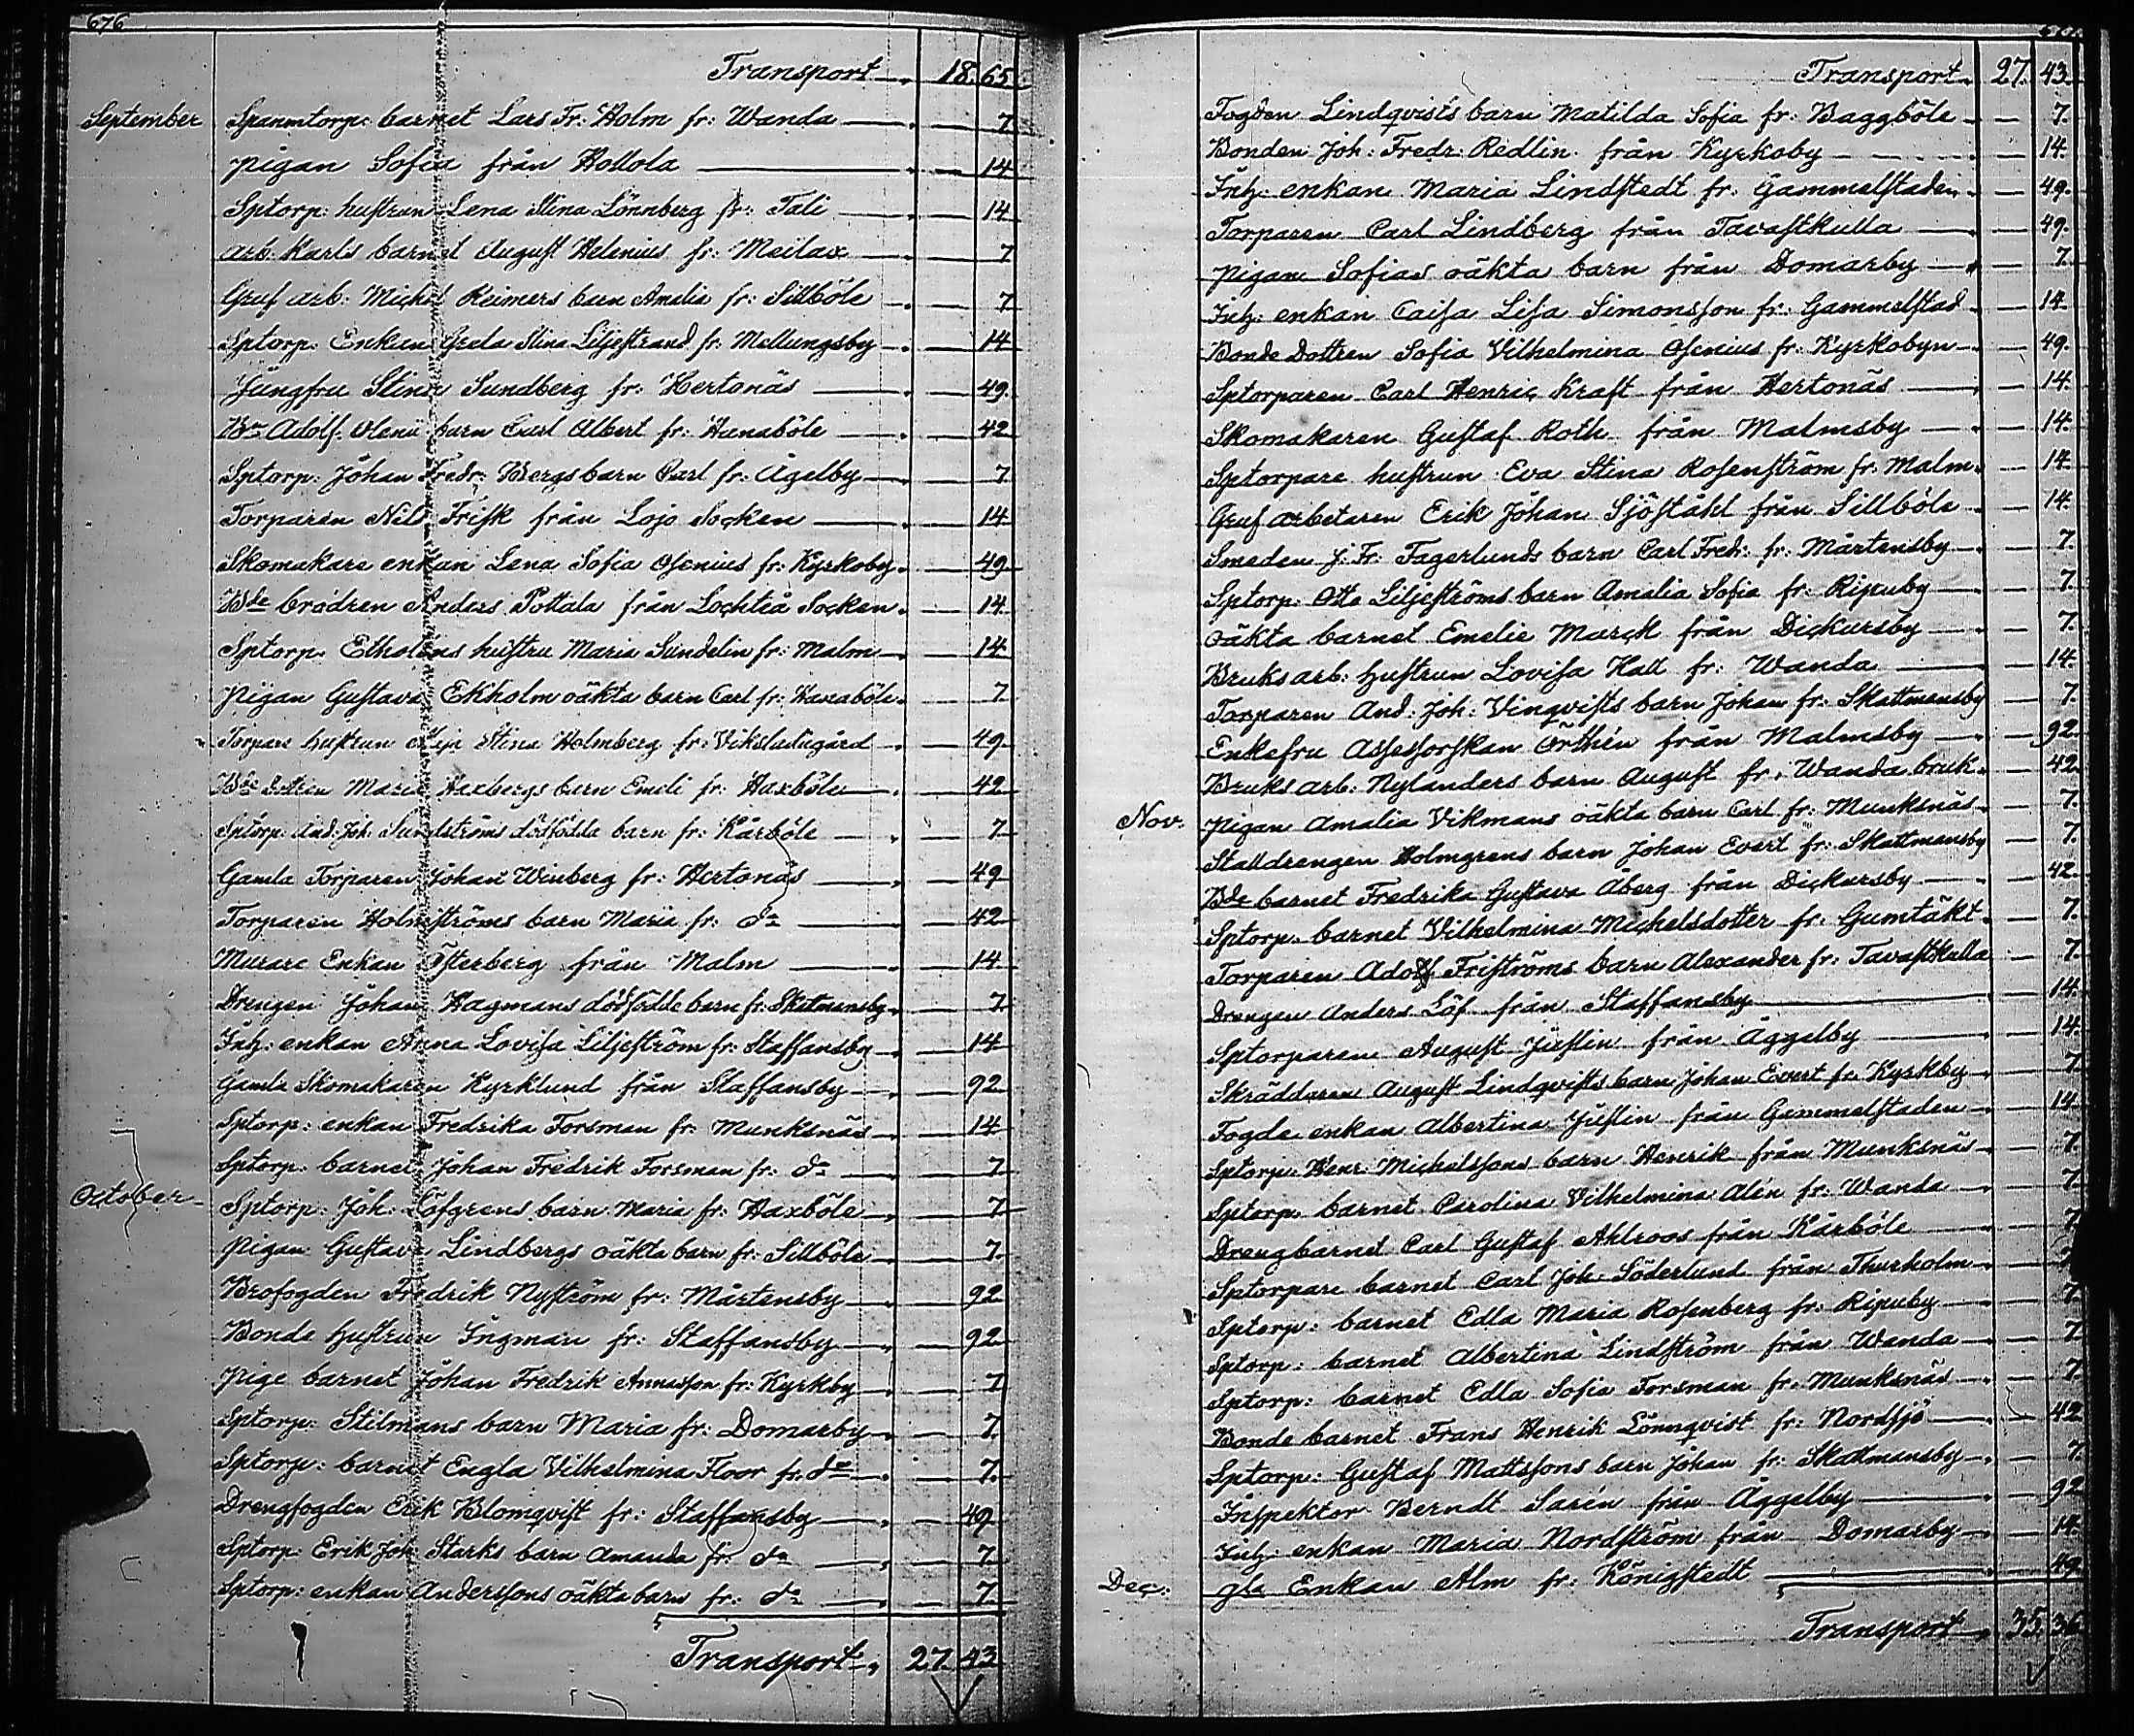 676
Transport 18. 65.
September Spanmtorp: barnet Lars Fr: Holm fr: Wanda — 7
pigan Sofia från Hollola — 14
Sptorp: hustrun Lena Stina Lönnberg fr: Tali — 14
arb: Karls barnet August Helenius fr: Meilax — 7
Gruf arb: Michel Reimers barn Amalia fr: Sillböle — 7
Sptorp: Enkan Greta Stina Liljestrand fr: Mellungsby — 14
Jungfru Stina Sundberg fr: Hertonäs — 49.
Bn Adolf Oleni barn Carl Albert fr: Hanaböle — 42
Sptorp: Johan Fredr: Bergs barn Carl fr: Ågelby — 7
Torparen Nils Frisk från Lojo Socken — 14
Skomakare enkan Lena Sofia Osenius fr: Kyrkoby — 49
Bde brodren Anders Pottala från Lochteå Socken — 14.
Sptorp. Ekholms hustru Maria Sundelin fr: Malm — 14.
Pigan Gustava Ekholm oäkta barn Carl fr: Haxaböle — 7
Torpare hustrun Maja Stina Holmberg fr: Viksladugård — 49.
Bde dottren Maria Haxbergs barn Emeli fr: Haxböle — 42
Sptorp: And: Joh: Sundströms dödfödda barn fr: Kårböle — 7
Gamla Torparen Johan Winberg fr: Hertonäs — 49
Torparen Holmströms barn Maria fr: do — 42
Murare Enkan Österberg från Malm — 14.
Drengen Johan Hagmans dödfödde barn fr: Skatmansby — 7.
Inh: enkan Anna Lovisa Liljeström fr: Staffansby — 14
Gamla Skomakaren Kyrklund från Staffansby — 92
Sptorp: enkan Fredrika Forsman fr: Munksnäs — 14
Sptorp: barnet Johan Fredrik Forsman fr: do — 7
October Sptorp: Joh: Löfgrens barn Maria fr: Haxböle — 7
Pigan Gustava Lindbergs oäkta barn fr: Sillböle — 7.
Brofogden Fredrik Nyström fr: Mårtensby — 92
Bonde hustrun Ingman fr: Staffansby — 92
Pige barnet Johan Fredrik Annasson fr: Kyrkby — 7
Sptorp: Stilmans barn Maria fr: Domarby — 7.
Sptorp: barnet Engla Vilhelmina Floor fr. do — 7.
Drengfogden Erik Blomqvist fr: Staffansby — 49
Sptorp: Erik Joh Starks barn Amanda fr: do — 7
Sptorp: enkan Anderssons oäkta barn fr: do — 7.
Transport 27. 43
Transport 27. 43
Fogden Lindqvists barn Matilda Sofia fr: Baggböle — 7.
Bonden Joh: Fredr: Redlin från Kyrkoby — 14.
Inh: enkan Maria Lindstedt fr: Gammelstaden — 49.
Torparen Carl Lindberg från Tavastkulla — 49.
Pigan Sofias oäkta barn från Domarby — 7
Inh: enkan Caisa Lisa Simonsson fr: Gammelstad — 14.
Bonde Dottren Sofia Vilhelmina Osenius fr: Kyrkobyn — 49.
Sptorparen Carl Henric Kraft från Hertonäs — 14.
Skomakaren Gustaf Roth från Malmsby — 14.
Sptorpare hustrun Eva Stina Rosenström fr: Malm — 14.
Gruf arbetaren Erik Johan Sjöståhl från Sillböle — 14.
Smeden J: Fr: Fagerlunds barn Carl Fredr: fr: Mårtensby — 7.
Sptorp: Otto Liljeströms barn Amalia Sofia fr: Ripuby — 7.
oäkta barnet Emelie Marck från Dickursby — 7.
Bruks arb: hustrun Lovisa Hall fr: Wanda — 14.
Torparen And: Joh: Vinqvists barn Johan fr: Skattmansby — 7.
Enkefru Assessorskan Örthén från Malmsby — 92.
Bruks arb: Nylanders barn August fr: Wanda bruk — 42
Nov. Pigan Amalia Vikmans oäkta barn Carl fr: Munksnäs — 7.
Stalldrengen Holmgrens barn Johan Evert fr: Skattmansby — 7.
Bde barnet Fredrika Gustava Åberg från Dickursby — 42.
Sptorp. barnet Vilhelmina Michelsdotter fr: Gumtäkt — 7.
Torparen Adolf Friströms barn Alexander fr: Tavastkulla — 7.
Drengen Anders Löf från Staffansby — 14.
Sptorparen August Justin från Åggelby — 14.
Skräddaren August Lindqvists barn Johan Evert fr. Kyrkby — 7
Fogde enkan Albertina Justin från Gammelstaden — 14
Sptorp: Henr: Michelssons barn Henrik från Munksnäs — 7.
Sptorp. barnet Carolina Vilhelmina Alén fr: Wanda — 7.
Drengbarnet Carl Gustaf Ahlroos från Kårböle — 7
Sptorpare barnet Carl Joh: Söderlund från Thurholm — 7
Sptorp: barnet Edla Maria Rosenberg fr: Ripuby — 7.
Sptorp: barnet Albertina Lindström från Wanda — 7
Sptorp: barnet Edla Sofia Forsman fr. Munksnäs — 7.
Bonde barnet Frans Henrik Lönnqvist fr: Nordsjö — 42
Sptorp: Gustaf Mattssons barn Johan fr: Skattmansby — 7.
Inspektor Berndt Sarén från Åggelby — 92
Inh: enkan Maria Nordström från Domarby — 14
Dec: gla Enkan Alm fr: Königstedt — 49
Transport 35. 36